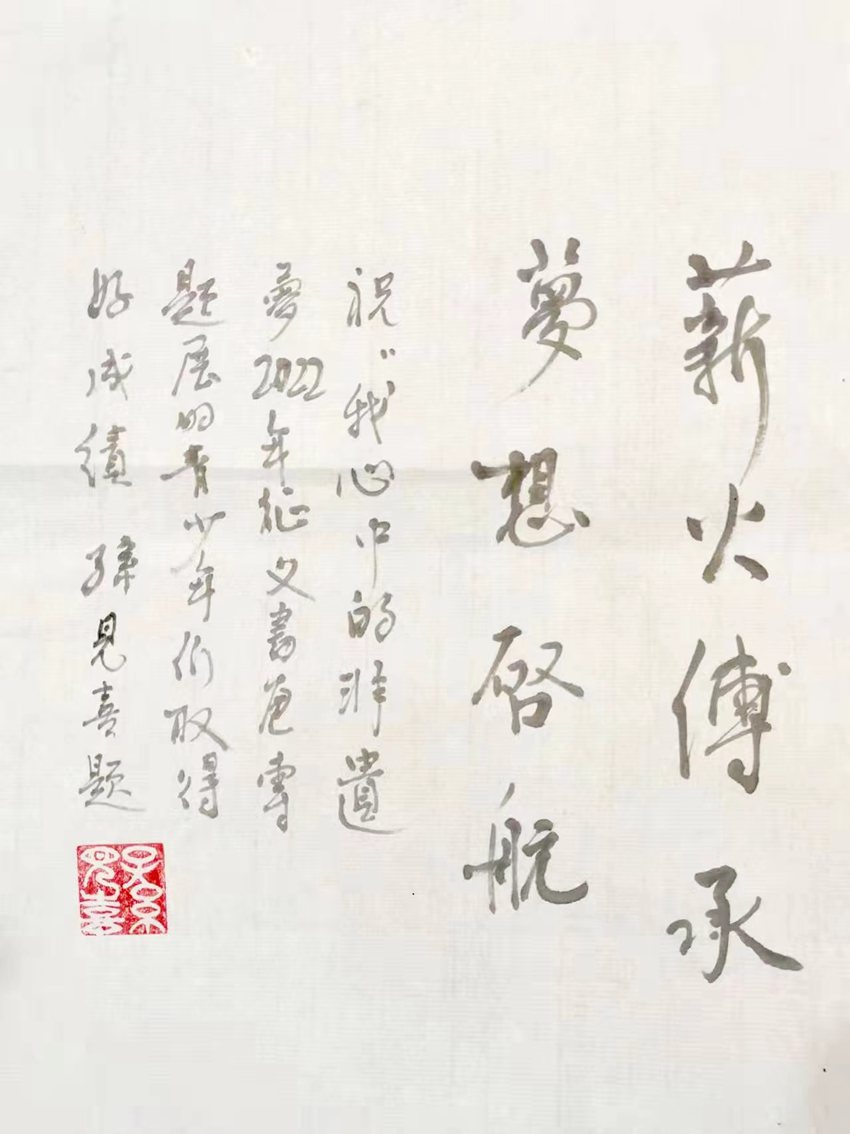 薪火傳承
夢想啓航
祝“我心中的非遺
夢2022年征文書畫專
題展的青少年们取得
好成績 孫見喜題
孫見喜